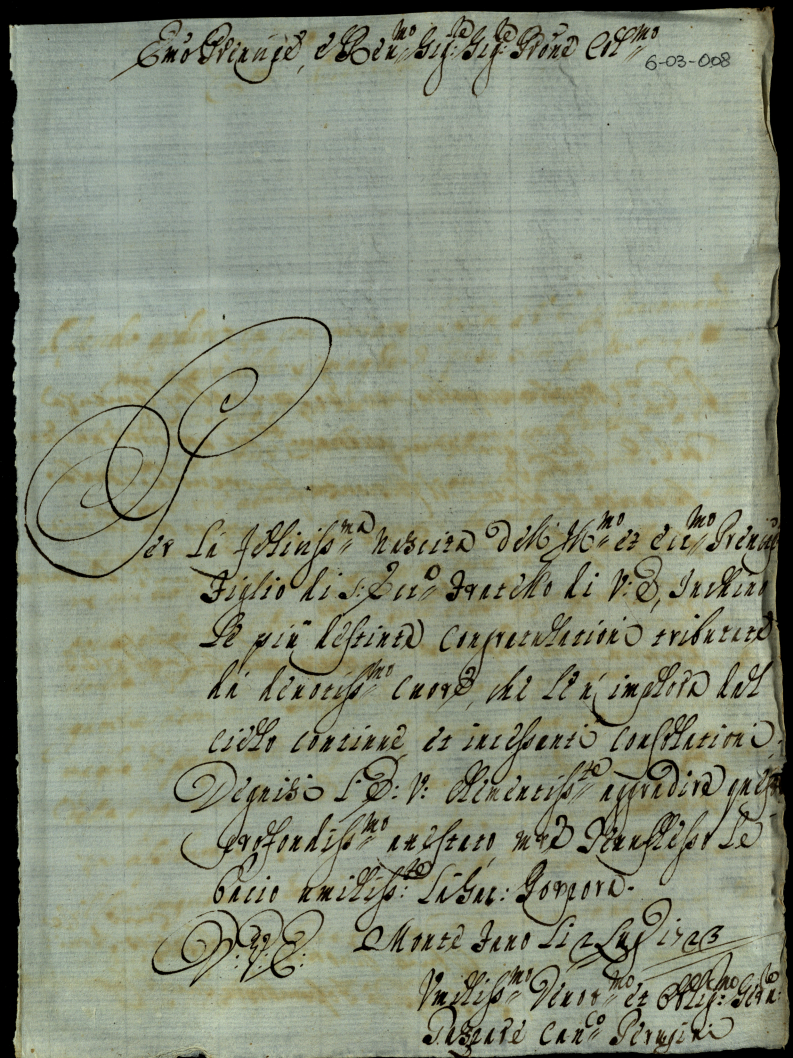 Emo Principe, e Reu.mo Sig:re Sig:re Prone Col.mo
6-03-008
Per la feliciss.ma nascita dell' Ill.mo et ecc.mo Principe
Figlio di S: Ecc.a Fratello di V: E, Inchino
le più destinte congratulationi tributate
da deuotiss.mo cuore, che le n'implora dal
cielo continue, et incessanti consolationi.
Degnisi l'E: V: clementiss.te aggradire questo
profondiss.mo attestato mre Genuflesso le
bacio umiliss:te la Sac: Porpora.
D: V: E: Monte Fano li 2 Lug 1723
Vmiliss.mo Deuot.mo et Oblig:mo Seru:
Can.co